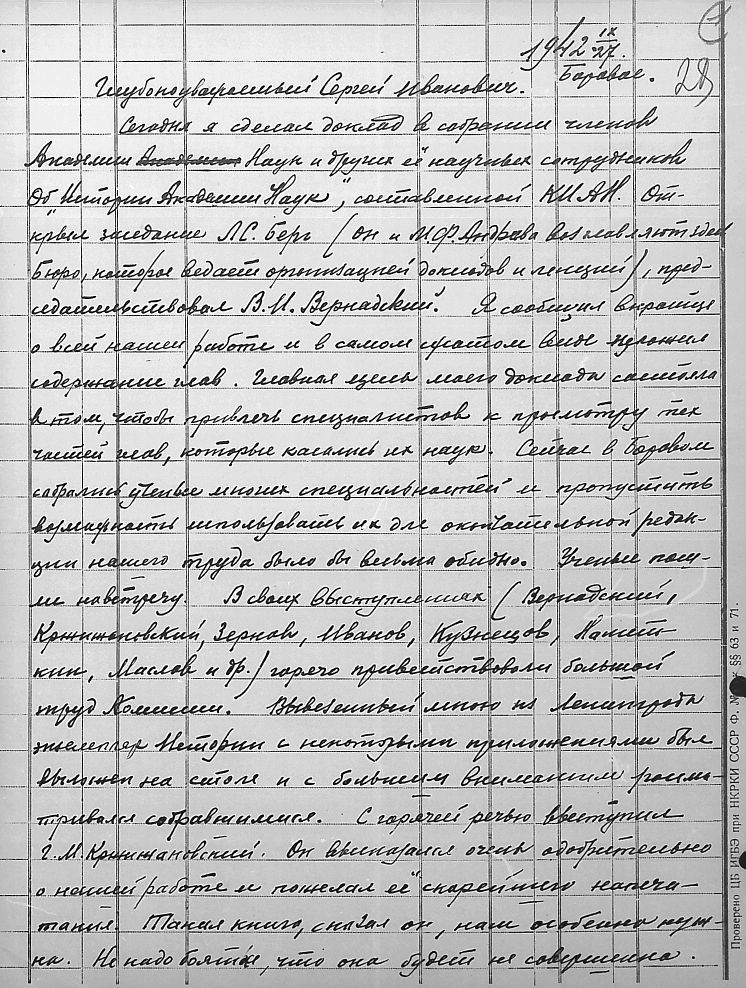 1942 IX/27.
Боровое.
28
Глубокоуважаемый Сергей Иванович.
Сегодня я сделал доклад в собрании членов
Академии Академии Наук и других её научных сотрудников
Об "Истории Академии Наук", составленной КИАН. От-
крыл заседание Л.С. Берг (он и М.Ф. Андреева возглавляют здесь
бюро, которое ведает организацией докладов и лекций), пред-
седательствовал В.И. Вернадский. Я сообщил вкратце
о всей нашей работе и в самом сжатом виде изложил
содержание глав. Главная цель моего доклада состояла
в том, чтобы привлечь специалистов к просмотру тех
частей глав, которые касались их наук. Сейчас в Боровом
собрались учёные многих специальностей и пропустить
возможность использовать их для окончательной редак-
ции нашего труда было бы весьма обидно. Ученые пош-
ли навстречу. В своих выступлениях (Вернадский,
Кржижановский, Зернов, Иванов, Кузнецов, Намёт-
кин, Маслов и др.) горячо приветствовали большой
труд Комиссии. Вывезенный мною из Ленинграда
экземпляр Истории с некоторыми приложениями был
выложен на столе и с большим вниманием рассма-
тривался собравшимися. С горячей речью выступил
Г.М. Кржижановский. Он высказался очень одобрительно
о нашей работе и пожелал её скорейшего напеча-
тания. Такая книга, сказал он, нам особенно нуж-
на. Не надо бояться, что она будет не совершенна.
Проверено ЦБ ИГБЭ при НКРКИ СССР Ф. №
§§ 63 и 71.